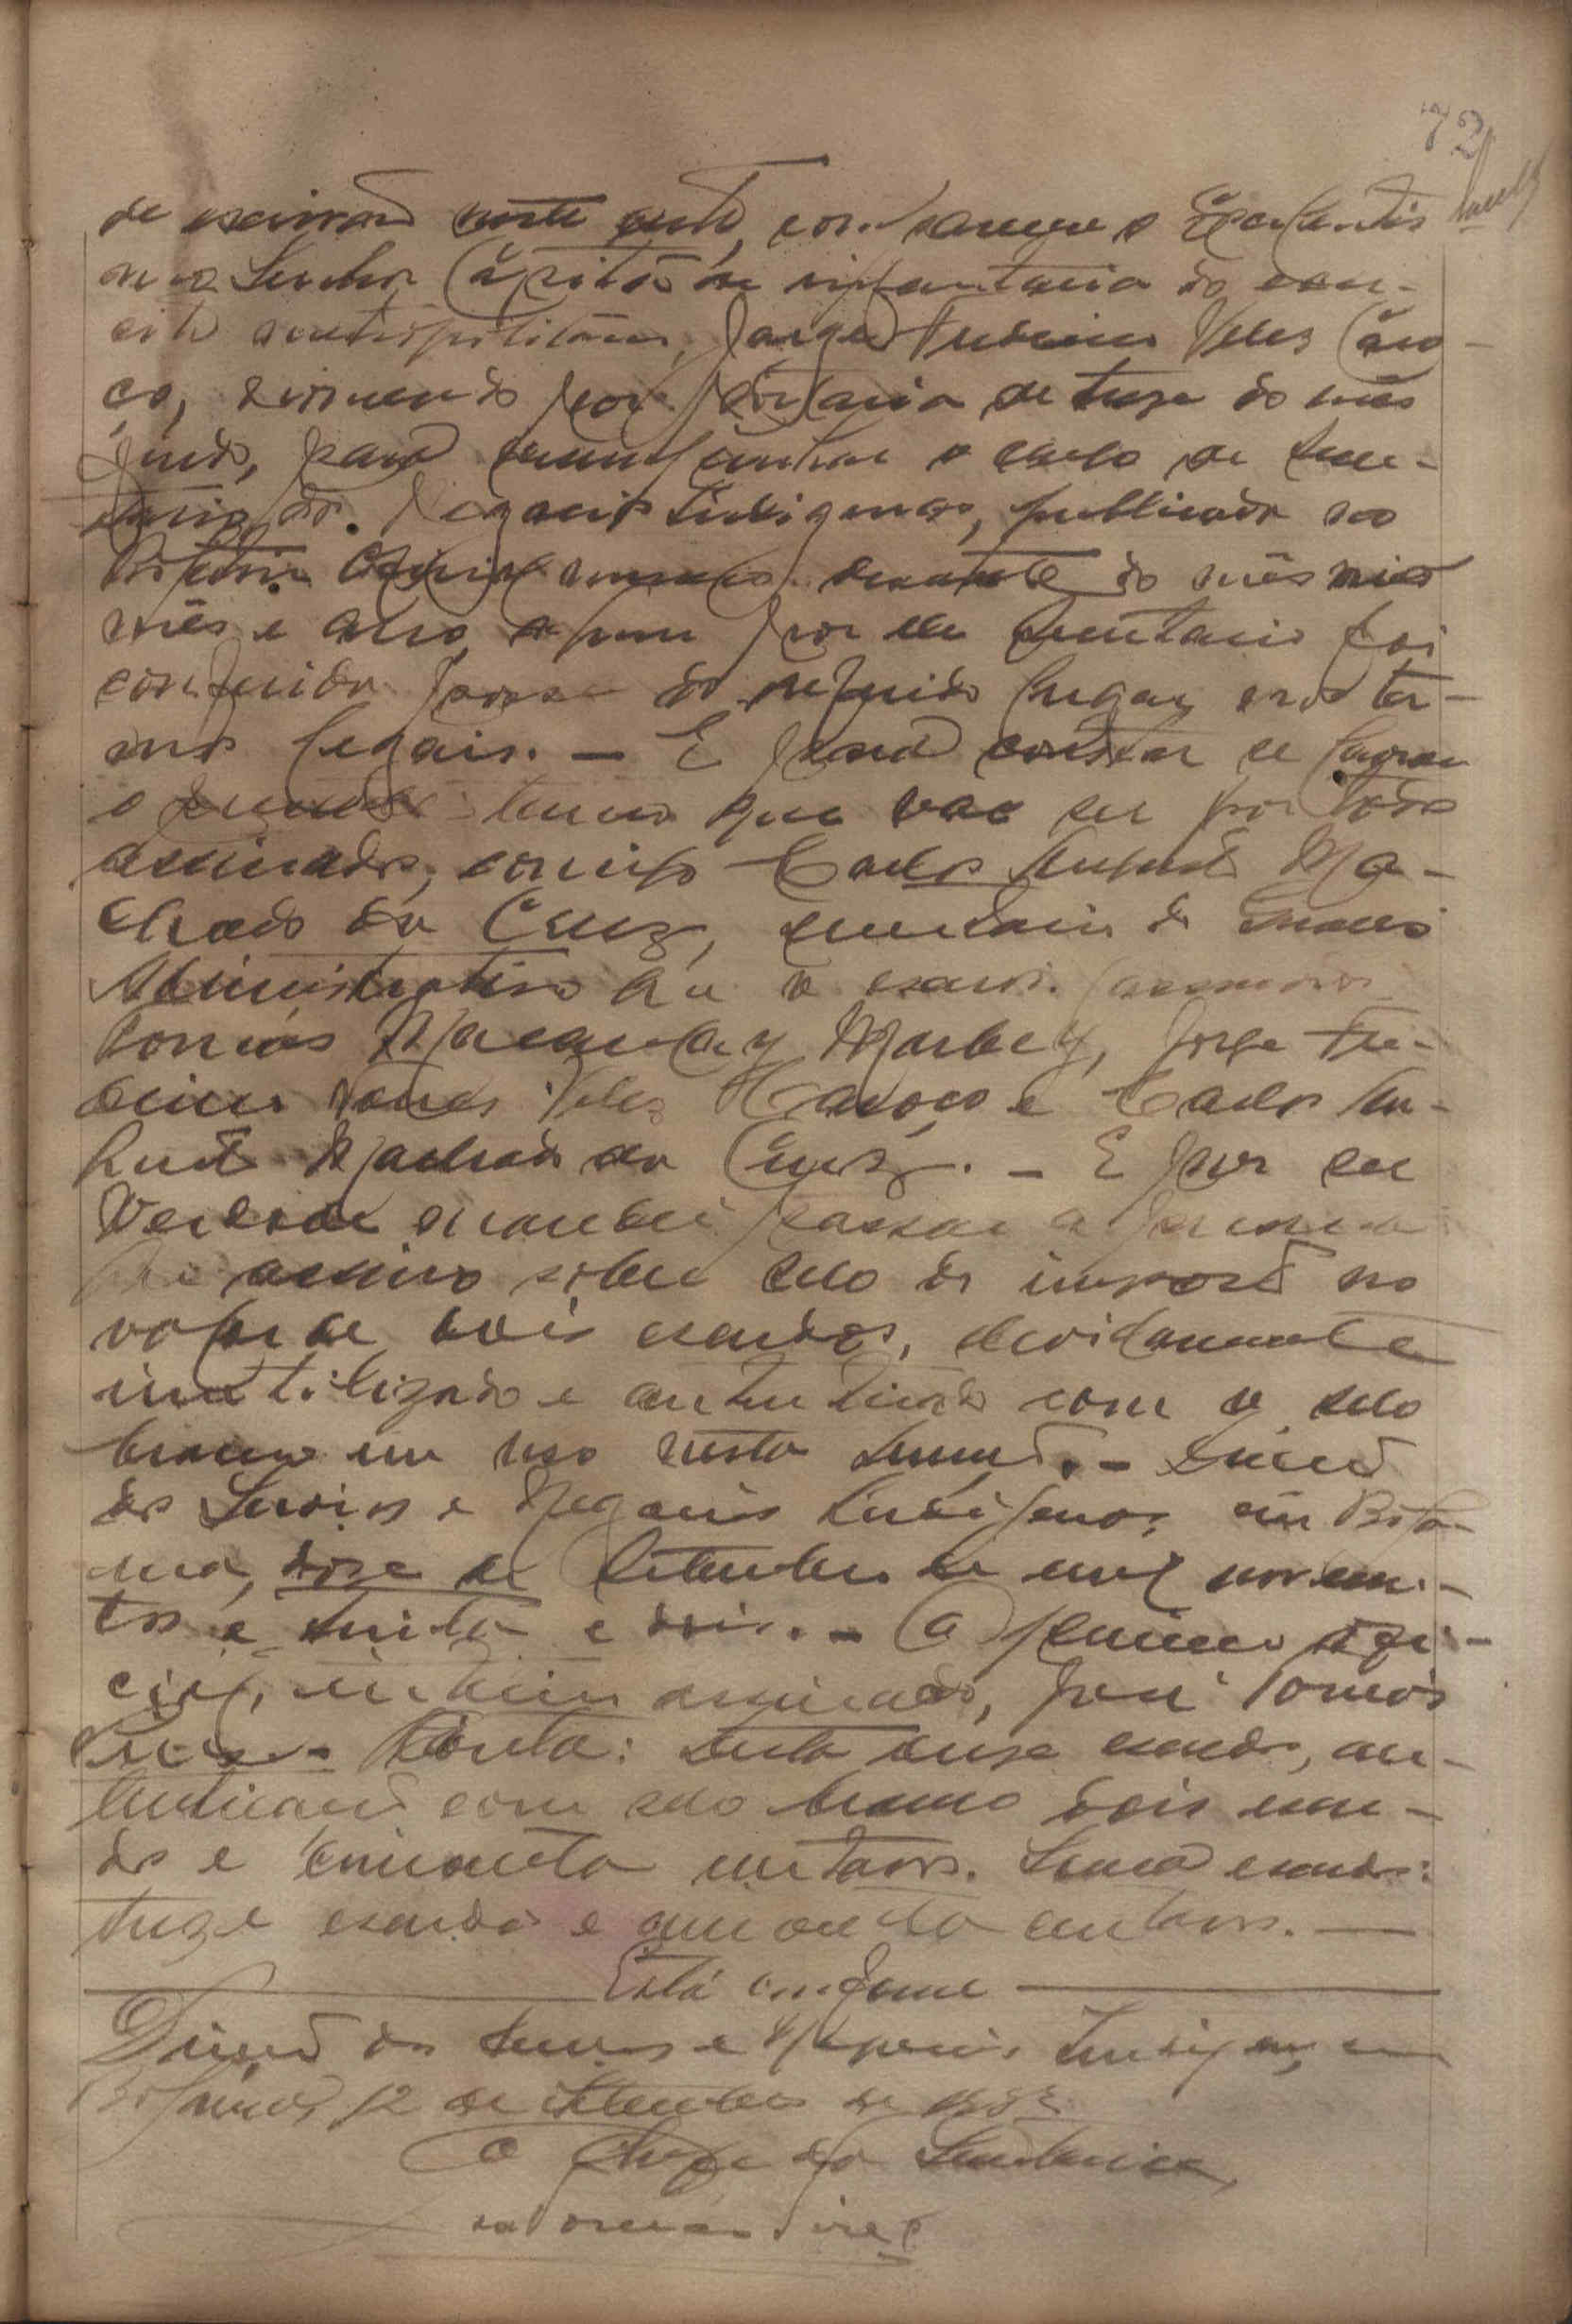 72
de escrivão neste acto, compareceu o Excelentis
mo Senhor Capitão de infantaria do exer-
cito metropolitano, Jorge Frederico Veles Caro-
ço, nomeado por portaria de treze do mês
findo, para desempenhar o cargo de secre-
tario dos Negocios Indigenas, publicada no
Boletim Oficial numero do mesmo
mês e ano, a quem por ele secretario foi
conferida posse do referido lugar, nos ter-
mos legais. — E para constar se lavrou
o presente termo que vae ser por todos
assinado, comigo Carlos Augusto Ma-
chado da Cruz, secretario do
Administrativo que o escrevi. (assinados)
Tomás Jorge Fre-
derico Torres Veles Caroço e Carlos Au-
gusto Machado da Cruz. — E por ser
verdade mandei passar a presente
que assino sobre selo do imposto no
valor de dois escudos, devidamente
inutilizado e autenticado com o selo
branco em uso nesta Direcção. — Direcção
dos Serviços e Negocios Indigenas, em Bola-
ma, doze de Setembro de mil novecen-
tos e trinta e dois. — O primeiro ofi-
cial, interino assinado, José Tomás
Conta: desta onze escudos, au-
tenticação com selo branco dois escu-
dos e cincoenta centavos. Soma escudos:
treze escudos e cincoenta centavos. —
Está conforme
Direcção dos Serviços e Negocios Indigenas, em
Bolama, 12 de Setembro de 1932
O Chefe da Secretaria,